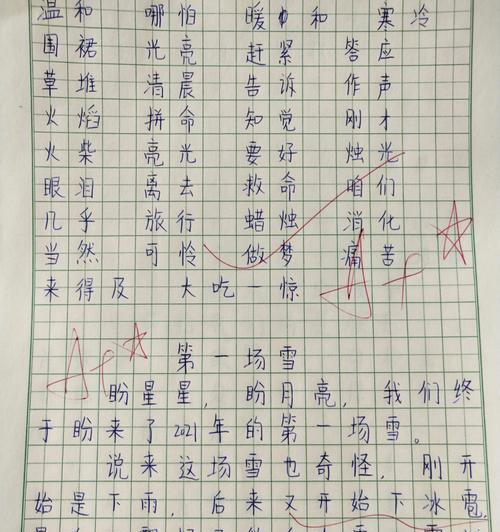 温和 哪怕 暖和 寒冷
围裙 光亮 赶紧 答应
草堆 清晨 告诉 作声
火焰 拼命 知觉 刚才
火柴 亮光 要好 烛光
眼泪 离去 救命 咱们
几乎 旅行 蜡烛 消化
当然 可怜 做梦 痛苦
来得及 大吃一惊
A+
A+
第一场雪
盼星星，盼月亮，我们终
于盼来了2021年的第一场雪。
说来这场雪也奇怪，刚开
始是下雨，后来又开始下冰雹，